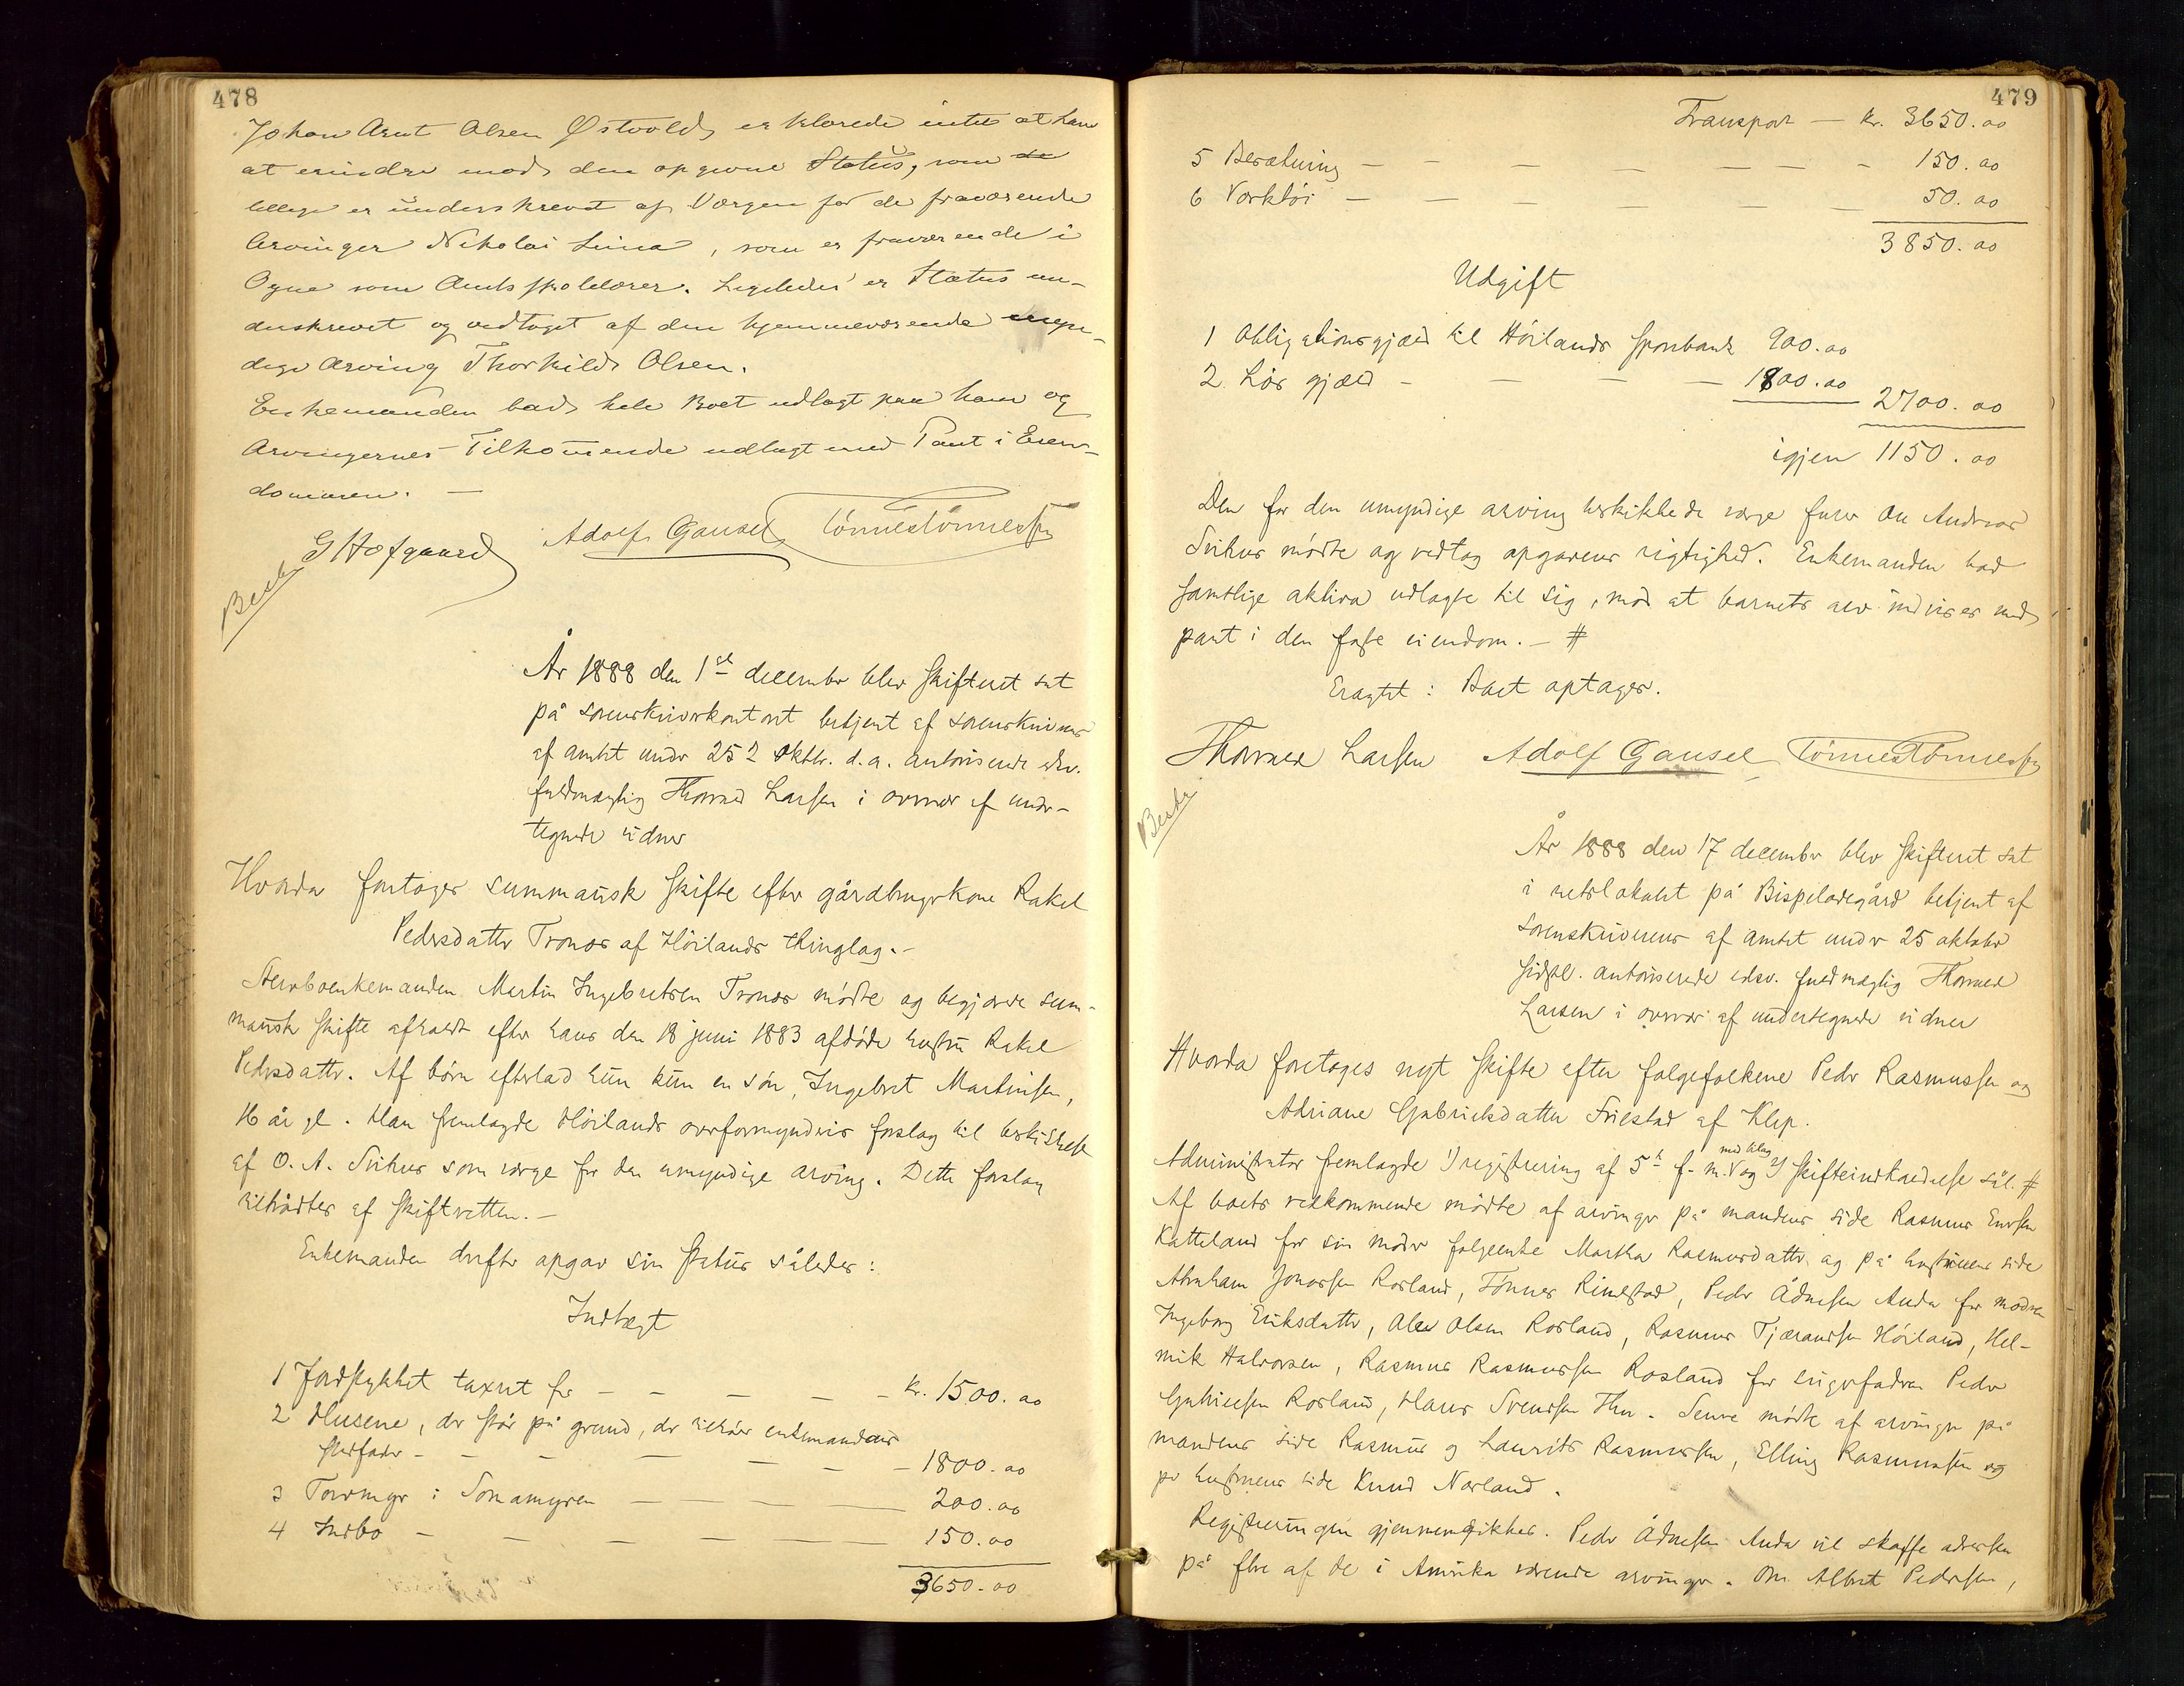 478
Johan Arnt Olsen Østvold, erklærede intet at have
at erindre mod den opgivne Status, som
tillige er underskrevet af Værgen for de fraværende
Arvinger Nikolai Lima, som er fraværende i
Ogne som Amtsskolelærer. Ligeledes er Status un-
derskrevet og vedtaget af den hjemmeværende myn-
dige Arving Thorkild Olsen.
Enkemanden bad hele Boet udlagt paa ham og
Arvingernes Tilkommende udlagt med Pant i Eien-
dommen. —
G Hofgaard Adolf Gausel Tönnes Tönnessen
År 1888 den 1ste december blev skifteret sat
på sorenskriverkontoret betjent af sorenskriverens
af amtet under 25 oktbr. d.a. autoriserede edsv.
fuldmægtig Thorvald Larsen i overvær af under-
tegnede vidner
Hvorda foretoges summarisk skifte efter gårdbrugerkone Rakel
Pedersdatter Tronæs af Höilands thinglag.-
Stervboenkemanden Martin Ingebretsen Tronæs mödte og begjærede sum-
marisk skifte afholdt efter hans den 18 juni 1883 afdöde hustru Rakel
Pedersdatter. Af börn efterlod hun kun en sön, Ingebret Martinsen,
16 år gl. Han fremlagde Höilands overformynderis forslag til beskikkelse
af O. A. Svihus som værge for den umyndige arving. Dette forslag
tiltrådtes af skifteretten.-
Enkemanden derefter opgav sin status således:
Indtægt
1 Jordstykket taxeret for - - - - - kr. 1500.00
2 Husene, der står på grund, der tilhører enkemandens
stedfader - - - - - - 1800.00
3 Torvmyr i Sömamyren - - - - 200.00
4 Indbo - - - - - 150.00
3650.00
479
Transport - kr. 3650.00
5 Besætning - - - - - - 150.00
6 Værktöi - - - - - - 50.00
3850.00
Udgift
1 Obligationsgjæld til Höilands Sparebank 900.00
2 Lös gjæld - - - - 1800.00 2700.00
igjen 1150.00
Den for den umyndige arving beskikkede værge furer Ole Andreas
Svihus mödte og vedtog opgavens rigtighed. Enkemanden bad
samtlige aktiva udlagte til sig, mod at barnets arv indvises med
pant i den faste eiendom.- #
Eragtet: Boet optages.
Thorvald Larsen Adolf Gausel Tönnes Tönnessen
År 1888 den 17 december blev skifteret sat
i retslokalet på Bispeladegård betjent af
sorenskriverens af amtet under 25 oktober
sidstl. autoriserede edsv. fuldmægtig Thorvald
Larsen i overvær af undertegnede vidner
Hvorda foretoges nyt skifte efter folgefolkene Peder Rasmussen og
Adriane Gabrielsdatter Friestad af Klep.
Administrator fremlagde 1) registrering af 5te f. m. med bilag og 2) skifteindkaldelse sål. #
Af boets vedkommende mödte af arvinger på mandens side Rasmus Enersen
Katteland for sin moder folgeenke Martha Rasmusdatter og på hustruens side
Abraham Jonassen Rosland, Tönnes Rimestad, Peder Ådnesen Anda for moderen
Ingeborg Eriksdatter, Ole Olsen Rosland, Rasmus Tjærandsen Höiland, Hel-
mik Halvorsen, Rasmus Rasmussen Rosland for svigerfaderen Peder
Gabrielsen Rosland, Hans Svendsen Thu. Senere mödte af arvinger på
mandens side Rasmus og Laurits Rasmussen, Elling Rasmussen og
på hustruens side Knud Norland.
Registreringen gjennemgikkes. Peder Ådnesen Anda vil skaffe adressen
på flere af de i Amerika værende arvinger. Om Albert Pedersen,